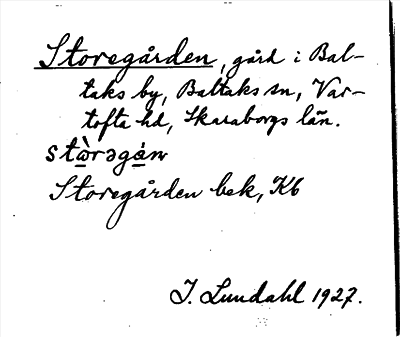 Storegården, gård i Bal-
taks by, Baltaks sn, Var-
tofta hd, Skaraborgs län.
stɑ̀rəgɑ́n
Storegården bek, Kb
I. Lundahl 1927.